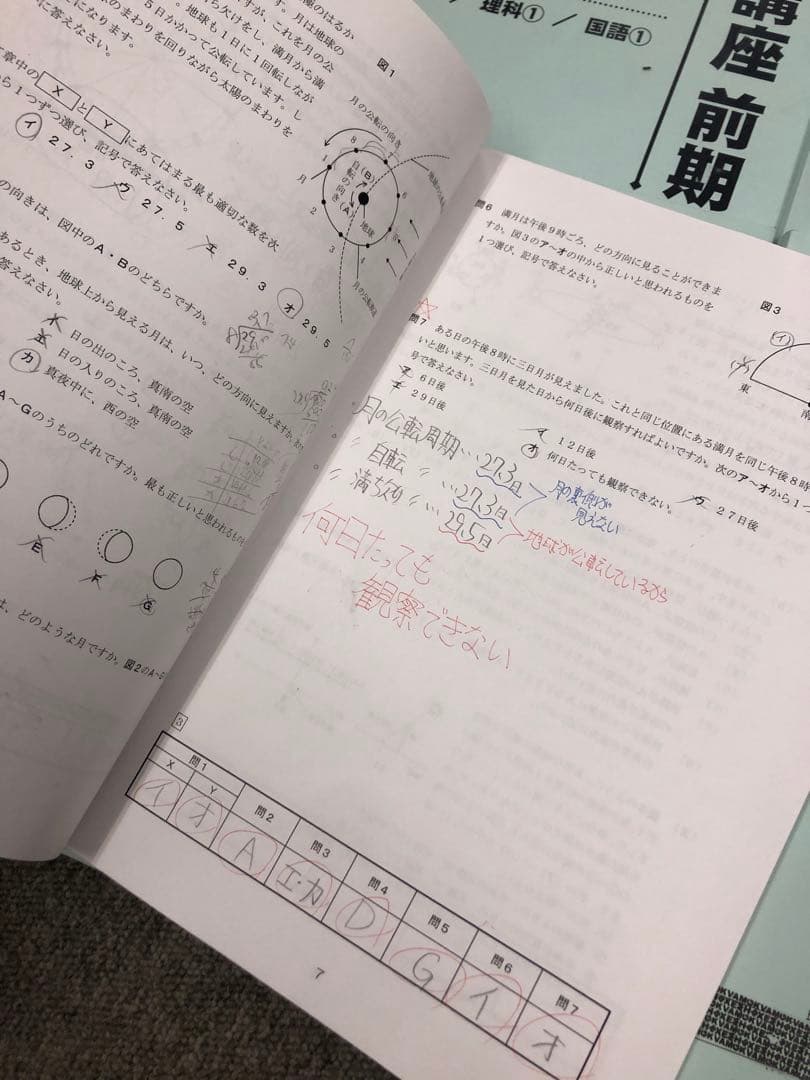 理科① / 国語①
講座 前期
陽のはるか
す。月は地球の
すが、これを月の公
ら欠けをし、満月から満
5日かかって公転しています。し
地球も1日に1回転しなが
のまわりを回りながら太陽のまわりを
になります。
に答えなさい。
章中の X と Y にあてはまる最も適切な数を次
から1つずつ選び、記号で答えなさい。
イ 27.3 ウ 27.5 エ 29.3 オ 29.5
の向きは、図中のA・Bのどちらですか。
あるとき、地球上から見える月は、いつ、どの方向に見えますか。
答えなさい。
日の出のころ、真南の空
日の入りのころ、真南の空
カ 真夜中に、西の空
A〜Gのうちのどれですか。最も正しいと思われるもの
E
F
G
は、どのような月ですか。図2のA〜G
図1
月の公転の向き
自転の向き
(B)
(A)
月
地球
1
2
3
4
6
8
問6 満月は午後9時ごろ、どの方向に見ることができま
すか。図3のア〜オの中から正しいと思われるものを
1つ選び、記号で答えなさい。
図3
イ
東
南
問7 ある日の午後8時に三日月が見えました。これと同じ位置にある満月を同じ午後8時
いと思います。三日月を見た日から何日後に観察すればよいですか。次のア〜オから1つ
号で答えなさい。
ア 6日後 イ 12日後 ウ 27日後
エ 29日後 オ 何日たっても観察できない。
月の公転周期…27.3日
〃 自転 〃 …27.3日
月の裏側が
見えない
〃 満ち欠け 〃…29.5日
地球が公転しているから
何日たっても
観察できない
3
問1 問2 問3 問4 問5 問6 問7
X Y
イ オ A エ・カ D G イ オ
7